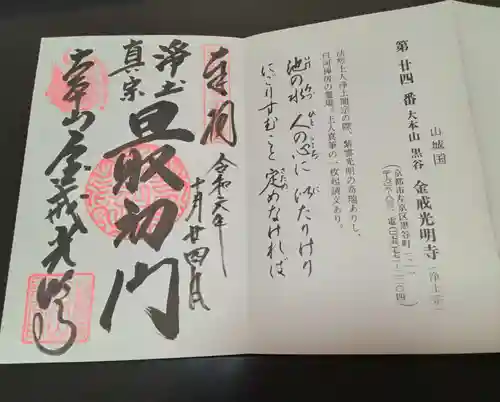 山城国
第廿四番 大本山 黒谷 金戒光明寺 (浄土宗)
(京都市左京区黒谷町一二一
法然上人浄土開宗の際、紫雲光明の奇瑞ありし、
白河禅房の霊場。上人真筆の一枚起請文あり。
池の水 人の心に 似たりけり
にごりすむこと 定めなければ
奉拝
令和六年
十月廿四日
浄土
真宗
最初門
大本山金戒光明寺